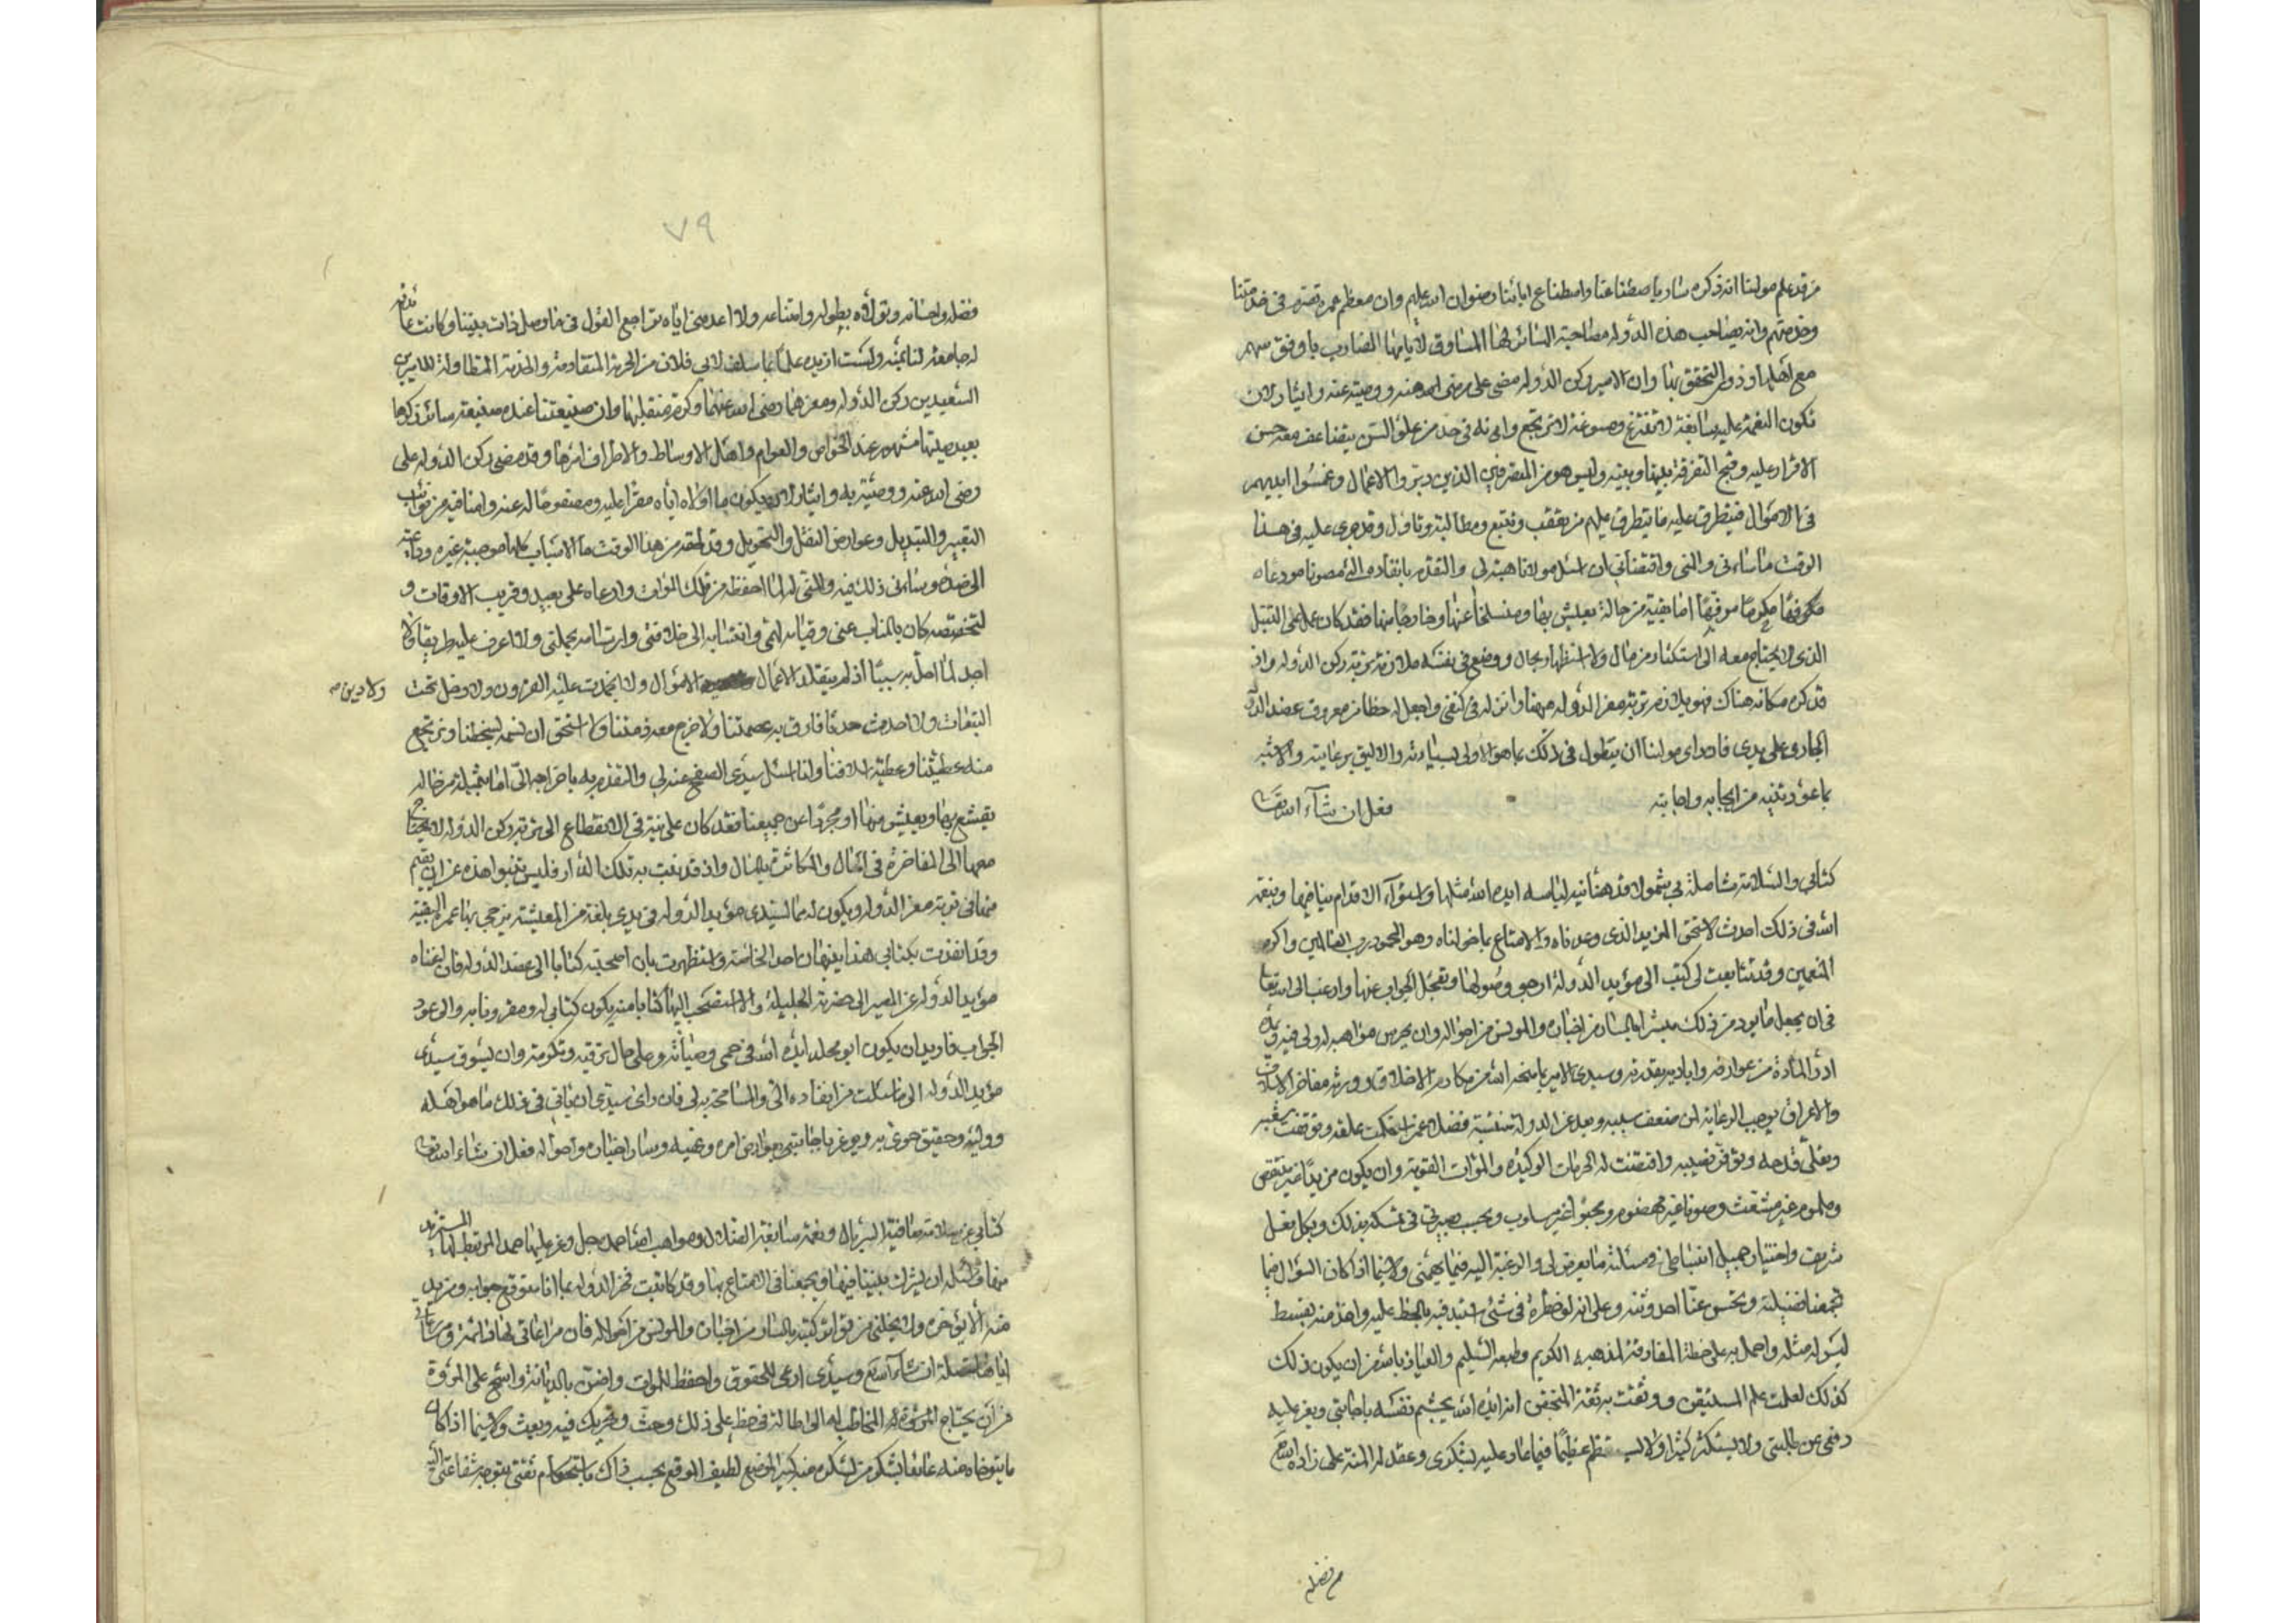 من قد علم مولينا انه ذكره سار باصطناعنا واصطناع ابائنا رضوان الله عليهم وان معظم عمره تصرم فى خدمتنا
وخدمتهم وانه يصاحب هذه الدوله مصاحبة السائر لها المساوق لايامها الضارب باوفق سهم
مع اهلها وذوى التحقق بها وان الامير ركن الدوله مضى على رضى الله عنه ووصيته عنه وايثار لان
تكون النعمه عليه سابغة لا تنتزع ومسوغة لا ترتجع وانه فى حد من علو السن يتضاعف معه حسن
الاقرار عليه وقبح التفرقة بينها وبينه وليس هو من المتصرفين الذين دبروا الاعمال وغمسوا ايديهم
فى الاموال فيتطرق عليه ما يتطرق عليهم من تعقب وتتبع ومطالبة وتأول وقد جرى عليه فى هذا
الوقت ما ساءنى والمنى واقتضانى ان اسئل مولانا هبته لى والتقدم بانفاذه الى مصونا مودعاه
مكنوفًا مكرومًا مرفهًا اما بقية من حالة يعيش بها ومنسلخا عنها وخارجًا منها فقد كان عمل على التبتل
الذى لا يحتاج معه الى استكثار من مال ولا استظهار بحال ووضع فى نفسه ملازمة تربة ركن الدوله واذ
قد كره مكانه هناك فهو يلازم تربة معز الدوله ههنا وانزله فى كنفى واجعل له حظا من معروف عضد الدوله
الجارى على يدى فان راى مولينا ان يتطول فى ذلك بما هو الاولى بسيادته والاليق برعايته والاشبه
بما عودنيه من ايجابه واجابته فعل ان شآء الله تعالى
كتابى والسلامة شاملة لى بشمولها قد هنأنيه لباسه ايده الله مثلها واستوآء الاقدام بيننا فيها وبنعمة
الله فى ذلك احدث لاستحق المزيد الذى وعدناه والامتاع بما خولناه وهو المحمود رب العالمين واكرم
المنعمين وقد تتابعت لى كتب الى مؤيد الدوله ارجو وصولها وتعجل الجواب عنها وارغب الى الله تعالى
فى ان يجعل ما يرد من ذلك مبشرا بالسار من اخباره والمونس من احواله وان يحرس مواهبه له ولى فيه
ادر المادة من عوارفه واياديه بقدرته وسيدى الامير بما منحه الله من مكارم الاخلاق وورثه مفاخر الاسلاف
والاعراق يوجب الرعاية لمن ضعف سببه وبعد عن الدوله تنفسه فضلا عمن استحكمت علقه
ويعلى قدحه ويوفر نصيبه واقتضت له الحرمات الوكيدة والموات القوية وان يكون مزيدًا غير منتقص
وملموم غير مشتعث ومصونا غير مهضوم ومحبوا غير مسلوب وبحسب بصيرتى فى تمسكه بذلك وبكل فعل
شريف واختيار جميل انبساطى فى مسئلته ما يعرض لى والرغبة اليه فيما يهمنى ولا سيما اذا كان السؤال فيما
تجمعنا فضيلته وتحسن عنا احدوثته وعلى انه لو خطرة فى شئ استبد فيه بالحظ عليه واخذ منه بقسط
ليس له مثله واحمل به على خطة المفارقة لمذهبه الكريم وطبعه السليم والعياذ بالله من ان يكون ذلك
كذلك لعلمت علم المستيقن ووثقت به ثقة المتحقق انه ايده الله يجشم نفسه باجابتى ويعز عليه
دفعى عن طلبتى ولا يستكثر كثيرا ولا يستعظم عظيما فيما عاد عليه بشكرى وعقد له المنة على زاده الله
م فضله
٧٩
فضله واحسانه وتولاه بطوله وامتناعه ولا اعدمنى اياه تراجع القول فى ما وصل ذات بيننا وكانت
له جامعة لنا بمنه ولست ازيده علما بما سلف لابى فلان من الحرمة المتقادمة والخدمة المتطاولة للاميرين
السعيدين ركن الدوله ومعزها رضى الله عنهما وكرم منقلبهما وان صنيعتنا عنده صنيعة سائر ذكرها
بعيد صيتها مشهور عند الخواص والعوام واهل الاوساط والاطراف اثرها وقد مضى ركن الدوله على
رضى الله عنه ووصيته به وايثاره لان يكون ما اولاه اياه مقرا عليه ومصفوحا له عنه وامنا فيه من نوائب
التغيير والتبديل وعوارض النقل والتحويل وقد لحقه من هذا الوقت ما الاسباب كلها موجبة غيره وداعية
الى ضده وساءنى ذلك فيه والمنى له لما احفظه من تلك الموات وارعاه على بعيد وقريب الاوقات و
لتخصصه كان بالمناب عنى وقيامه لنمى وانتسابه الى خلافتى وارتسامه بجملتى ولا اعرف عليه طريقا ولا
اجد لما احل به سببا اذ لم يتقلد الاعمال ولا دبر الاموال ولا انجذبت عليه الفزون ولا دخل تحت
ولا دبر صح
التبعات ولا احدث حدثا فارق به عصمتنا ولا خرج معه ذمتنا ولا استحق ان نسمه بسخطنا ونرتجع
منه عطيتنا وعطية اسلافنا وانا اسئل سيدى الصفح عنه لى والتقدم به باخراجه الى اما بثميلة من حاله
يقشع بها ويعيش منها او مجردا عن جميعها فقد كان على نية فى الانقطاع الى تربة ركن الدوله لا يحتاج
معها الى المفاخرة فى الحال والمكاثرة بالمال واذ قد نبت به تلك الدار فليس تنبوا هذه عن ان يقيم
منها فى تربة معز الدوله ويكون له مما لسيدى مؤيد الدوله فى يدى بلغة من المعيشة يزجى بها عمره البقية
وقد انفذت بكتابى هذا بنهان احد الخاصة واستظهرت بان اصحبته كتابا الى عضد الدوله فان اغناه
مؤيد الدوله عن المصير الى حضرته الجليلة والا استصحب اليها كتابا منه يكون كتابى له ومقرونا به والى عود
الجواب فاريد ان يكون ابو مخلد ايده الله فى حمى وصيانة وعلى حال ترفيه وتكرمة وان يسوق سيدى
مؤيد الدوله الى ما سالت من انفاده الى والمسامحة به لى فان راى سيدى ان ياتى فى ذلك ما هو اهله
ووليه وحقيق حرى به ويوعز باجابتى بعوارض امره ونهيه وسار اخباره واحواله فعل ان شاء الله تعالى
كتابى عن سلامة ضافية السربال ونعمة سابغة الظلال ومواهب لله احمده جل وعز عليها حمد المرتبط لها المستزيد
منها واسئله ان يشرك بيننا فيها ويجمعنا فى الامتاع بها وقد كاتبت فخر الدوله بما انا متوقع جوابه ومزيد
منه ألا يؤخره ولا يخلنى من تواتر كتبه بالسار من اخباره والمونس من احواله فان مراعاتى لها دائمة
اياها متصلة ان شاء الله تعالى وسيدى ارعى للحقوق واحفظ للموات واضن بالديانة واشح على المروة
من ان يحتاج المخاطب له الى اطالة فى حظ على ذلك وحث وتحريك فيه وبعث ولا سيما اذا كان
ما يتوخاه منه عائدا بشكر من لشكره منه كبير الموضع لطيف الموقع بحسب ذاك